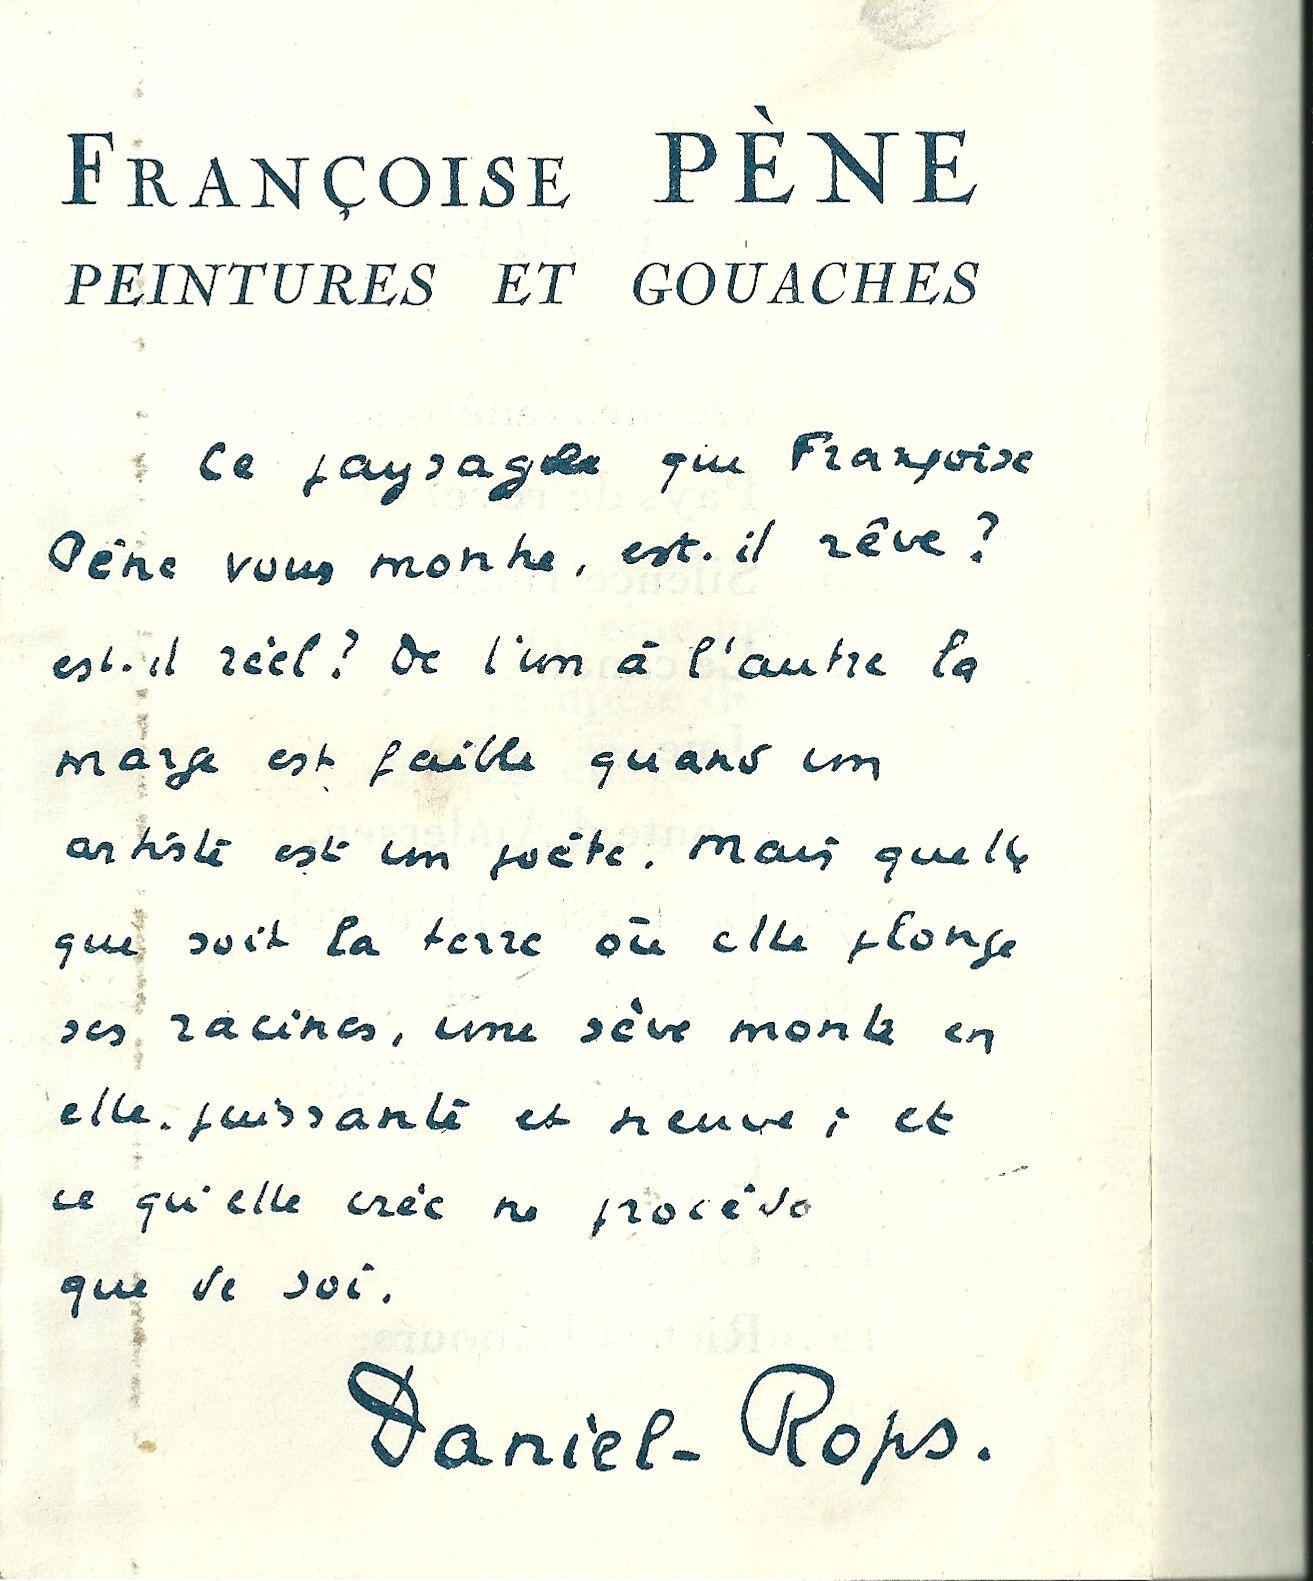 FRANÇOISE PÈNE
PEINTURES ET GOUACHES
Ce paysage que Françoise
Pène vous montre, est-il rêve?
est-il réel? De l'un à l'autre la
marge est faible quand un
artiste est un poète. Mais quelle
que soit la terre où elle plonge
ses racines, une sève monte en
elle, puissante et neuve ; et
ce qu'elle crée ne procède
que de soi.
Daniel-Rops.